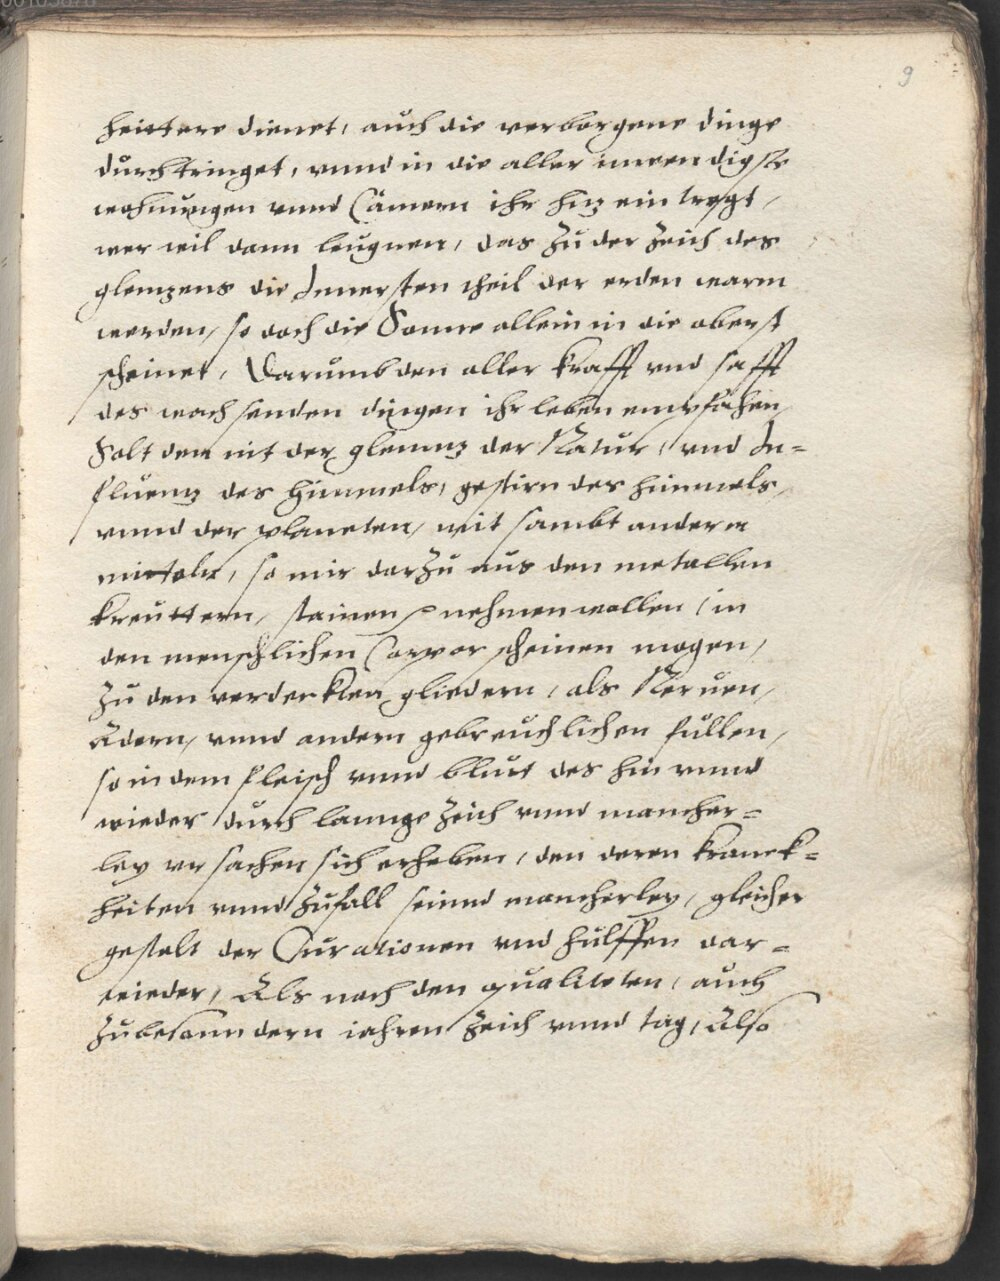 9
heittere dienet, auch die verborgene dinge
durchtringet, vnnd in die aller inwendigste
wohnungen vnnd Cämern ihr hiz ein tregt,
wer wil dann leugnen, das zu der zeich des
glenzens die Innersten theil der erden warm
werden, so doch die Sonne allein in die oberst
scheinet, Darumb den aller krafft vnd safft
des wachsenden dingen ihr leben empfahen,
Solt den nit der glennz der Natur, vnd In=
fluenz des himmels, gestirn des himmels,
vnnd der planeten, mit sambt andern
mitteln, so mir darzu aus den metallen
kreuttern, stainen nehmen wollen, in
den menschlichen Corpor scheinen mogen,
zu den verderkten gliedern, als Neruen,
Adern, vnnd andern gebreuchlichen fullen,
so in dem fleisch vnnd blutt des hin vnnd
wieder durch lannge zeich vnnd mancher=
ley vrsachen sich erheben, den deren kranck=
heiten vnnd zufall seinnd mancherley, gleicher
gestalt der Curationen vnd hulffen dar=
wieder, Als nach den qualiteten, auch
zubesonndern iahren zeich vnnd tag, Also